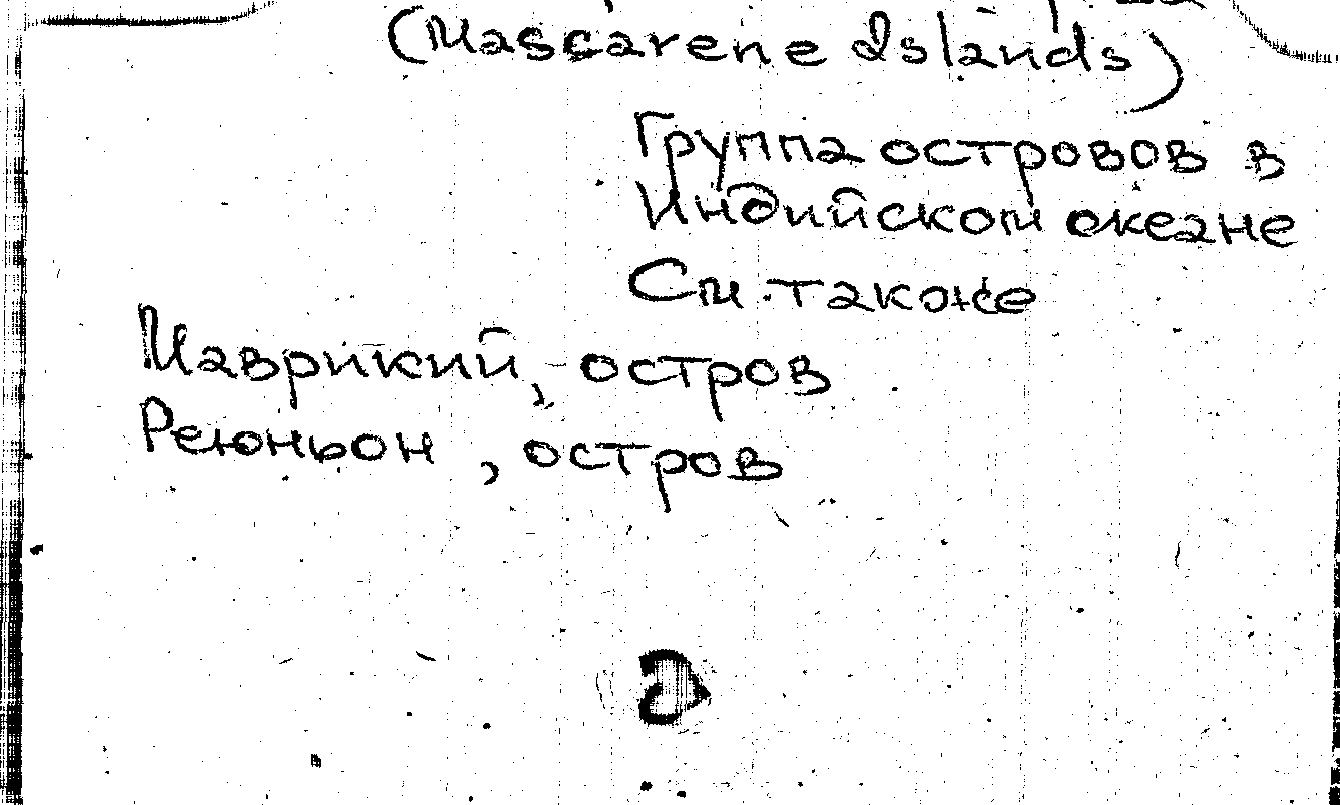 (Mascarene Islands)
Группа островов в
Индийском океане
См. также
Маврикий, остров
Реюньон, остров